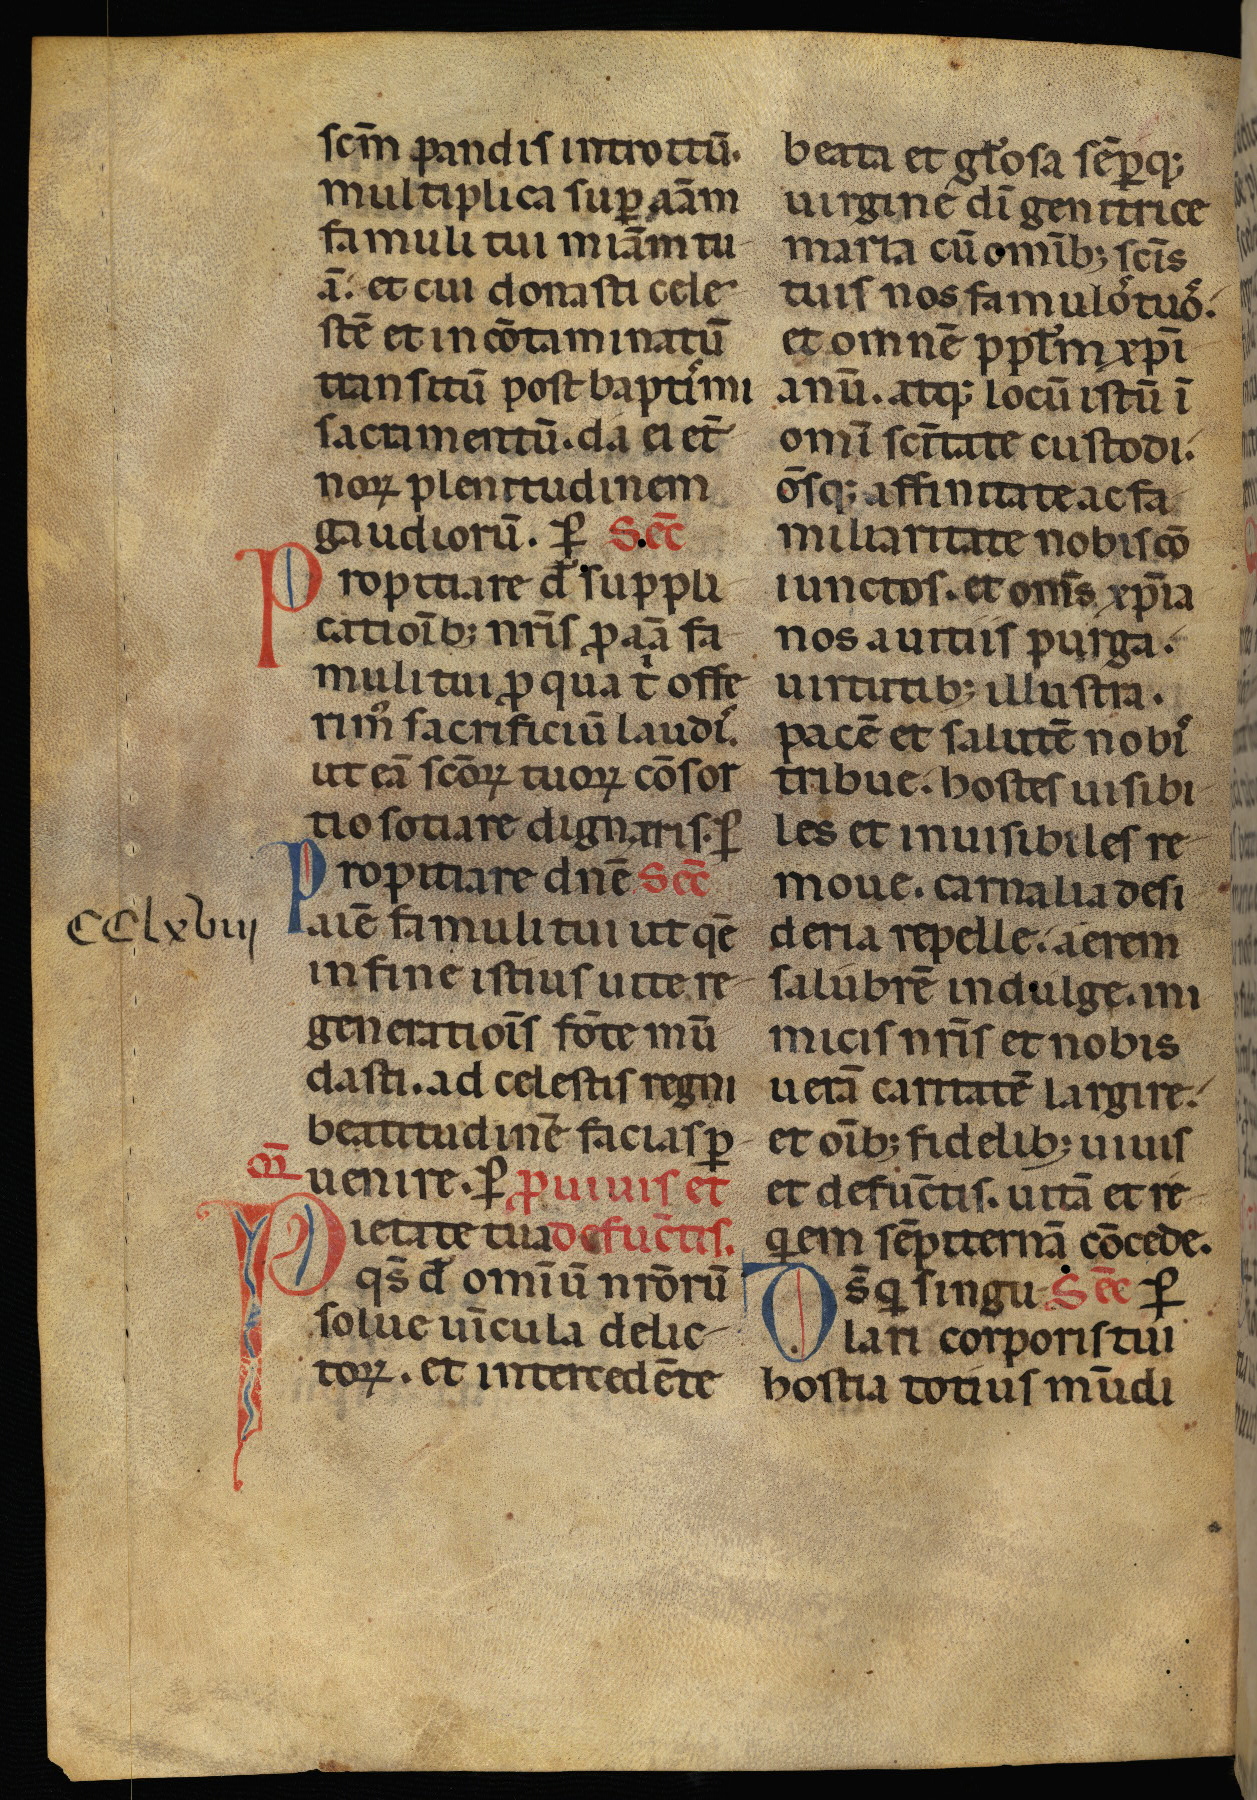 scm̄ pandis introitū.
multiplica suꝑ aām
famuli tui miām tu
ā. et cui donasti cele
stē et incōtaminatū
transitū post baptiͦmi
sacramentū. da ei et̄
noꝝ plenitudinem
gaudiorū. ꝑ Sēc
Propitiare d̄s suppli
catioīb; nrīs ꝓ aā fa
muli tui ꝓ qua tͥ offe
rimꝰ sacrificiū laudiͦ.
ut eā scōꝝ tuoꝝ cōsor
tio sotiare digneris. ꝑ
Propitiare dnē Sēc
CClxviii
aīe famuli tui ut qē
in fine istius uite re
generatioīs fōte mū
dasti. ad celestis regni
beatitudinē facias ꝑ
uenire. ꝑ ꝓ uiuis et
oR̄
Pietate tua defūctis.
qs̄ d̄s omīū nrōrū
solue uīcula delic
toꝝ. et intercedēte
beata et gl̄osa sēꝑq;
uirginē dī genitrice
maria cū omīb; scīs
tuis nos famulōͬ tuōͬ.
et omnē ppl̄m xp̄i
anū. atq; locū istū ī
omī scītate custodi.
ōsq; affinitate ac fa
miliaritate nobis cō
iunctos. et omīs xp̄ia
nos a uitiis purga.
uirtutib; illustra.
pacē et salutē nobiͦ
tribue. hostes uisibi
les et inuisibiles re
moue. carnalia desi
deria repelle. aerem
salubrē indulge. ini
micis nrīs et nobis
uerā caritatē largire.
et oīb; fidelib; uiuis
et defūctis. uitā et re
qem sēpiternā cōcede.
Ds̄ q singu Sēc ꝑ
lari corporis tui
hostia totius mūdi